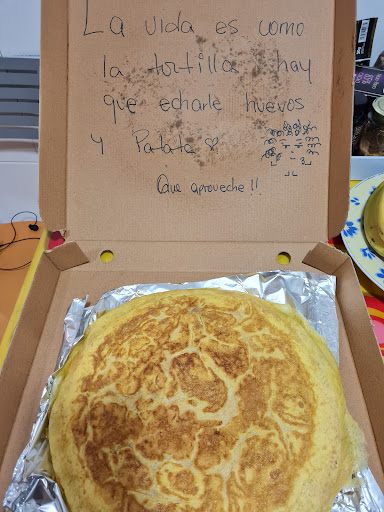 La vida es como
la tortilla hay
que echarle huevos
y Patata ♡
Que aproveche!!